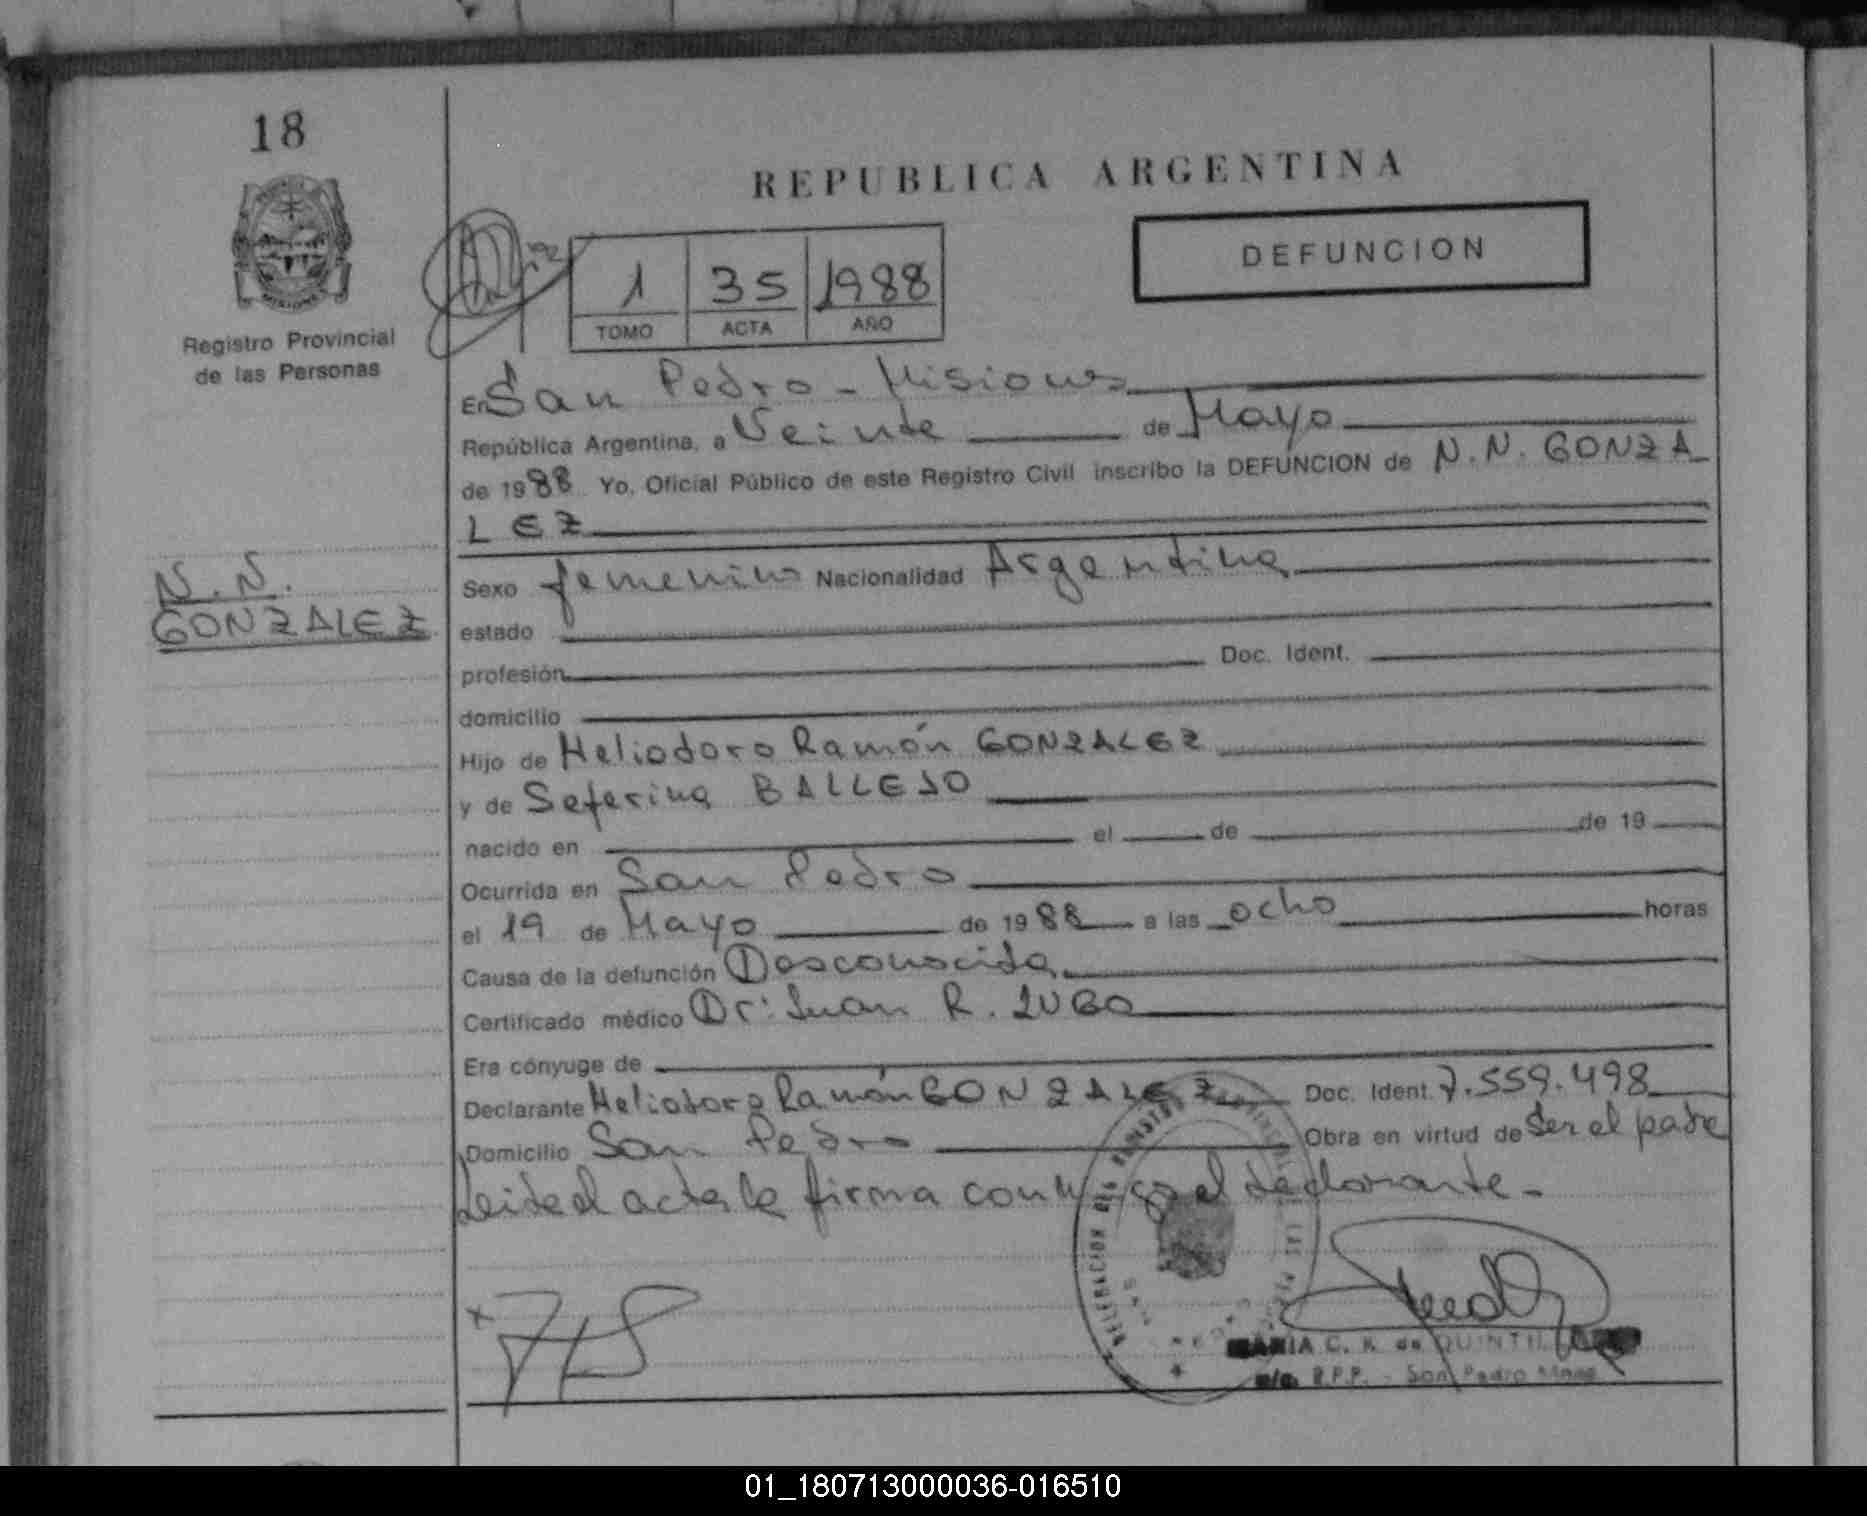 18
REPUBLICA ARGENTINA
DEFUNCION
1 35 1988
TOMO ACTA AÑO
Registro Provincial
de las Personas
En San Pedro - Misiones
República Argentina, a Veinte de Mayo
de 1988 Yo, Oficial Público de este Registro Civil inscribo la DEFUNCION de N.N. GONZA
LEZ
N.N.
GONZALEZ
Sexo femenino Nacionalidad Argentina
estado
profesión Doc. Ident.
domicilio
Hijo de Heliodoro Ramón GONZALEZ
y de Seferina BALLEJO
nacido en el de de 19
Ocurrida en San Pedro
el 19 de Mayo de 1988 a las ocho horas
Causa de la defunción Desconocida
Certificado médico Dr: Juan R. LUGO
Era cónyuge de
Declarante Heliodoro Ramón GONZALEZ Doc. Ident. 7.559.498
Domicilio San Pedro Obra en virtud de Ser el padre
Leida el acta la firma conmigo el declarante.-
MARIA C. K. de
R.P.P. - San Pedro Mnes
01_180713000036-016510